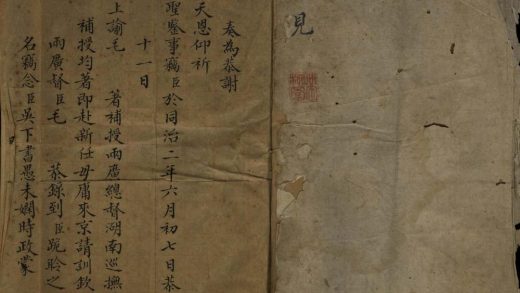 見
奏為恭謝
天恩仰祈
聖鑒事竊臣於同治二年六月初七日恭
十一日
上諭毛　著補授兩廣總督湖南巡撫
補授均著即赴新任毋庸來京請訓欽
兩廣督臣毛　恭錄到臣跪聆之
名竊念臣吳下書愚未嫻時政蒙